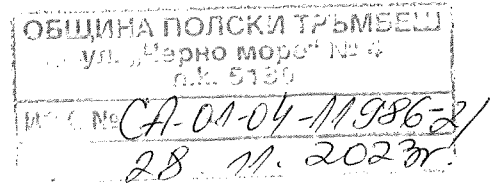 ОБЩИНА ПОЛСКИ ТРЪМБЕШ
ул. „Черно море“ № 4
п.к. 5180
№ СА-01-04-11986-2/
28 11. 2023г.